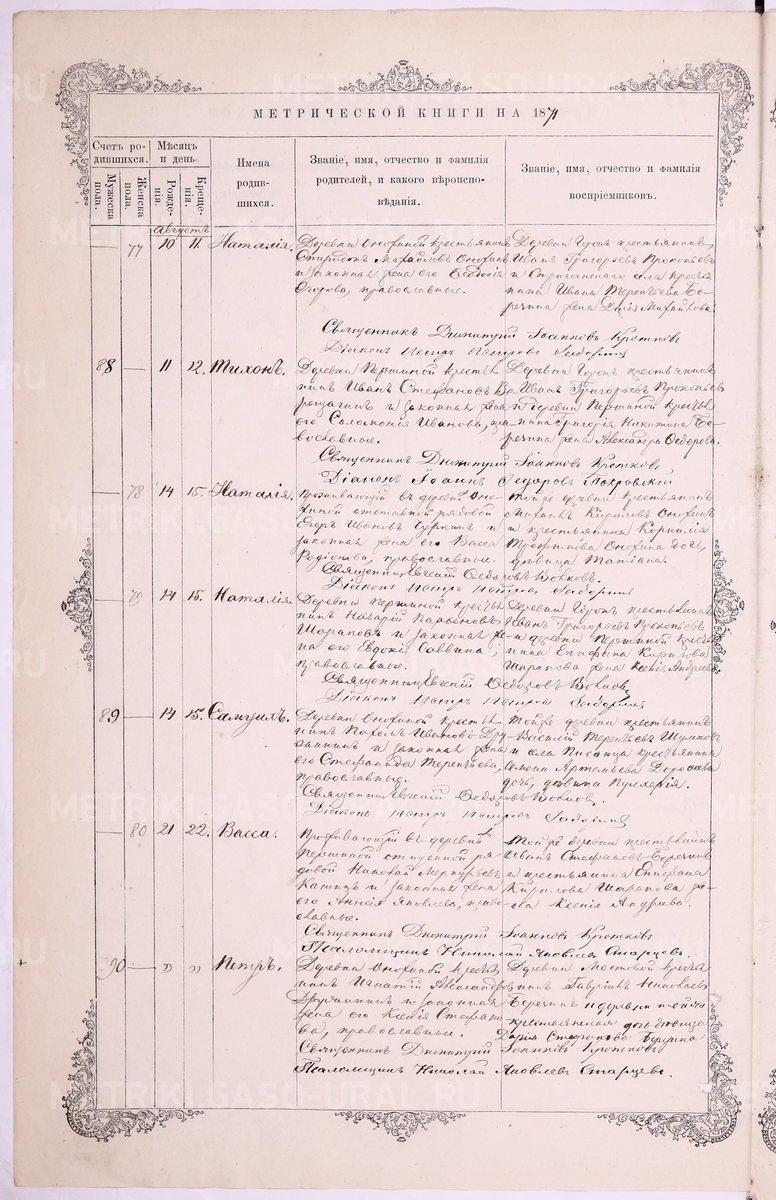 МЕТРИЧЕСКОЙ КНИГИ НА 1871
Счетъ ро-
дившихся.
Мужеска пола.
Женска пола.
Мѣсяцъ
и день.
Рожде-
нія.
Креще-
нія.
Имена
родив-
шихся.
Званіе, имя, отчество и фамилія
родителей, и какого вѣроиспо-
вѣданія.
Званіе, имя, отчество и фамилія
воспріемниковъ.
Августъ
— 77 10 11. Наталія.
Деревни Онохиной крестьянинъ
Спиридонъ Михайловъ Онохинъ
и законная жена его Ѳедосія
Егорова, православные.
Деревни крестьянинъ
Иванъ Григорьевъ Прокопьевъ
и села кресть
янина Ивана Терентьева Бе-
речина жена Михайлова.
Священникъ Димитрій Іоанновъ Кротковъ
Діаконъ Петръ Петровъ
88 — 11 12. Тихонъ.
Деревни Першиной кресть
нинъ Иванъ Стефановъ Ве
рещагинъ и законная жена
его Соломонія Иванова, пра
вославные.
Деревни крестьянинъ
Иванъ Григорьевъ Прокопьевъ
и деревни Першиной кресть
янина Григорія Никитина Бе-
речина жена Александра Ѳедорова.
Священникъ Димитрій Іоанновъ Кротковъ
Діаконъ Іоаннъ Ѳедоровъ Покровскій
— 78 14 15. Наталія.
Проживающій въ деревнѣ Оно-
хиной отставной рядовой
Егоръ Ивановъ Чуркинъ и
законная жена его Васса
Родіонова, православные.
Тойже деревни крестьянинъ
Михаилъ Кириловъ Онохинъ
и крестьянина Корнилія
Трофимова Онохина дочь,
дѣвица Матіана.
Священникъ Евгеній Ѳедоровъ
Діаконъ Петръ Петровъ
— 79 14 15. Наталія
Деревни Першиной кресть
нинъ Назарій Парѳеновъ
Шараповъ и законная же
на его Евдокія Саввина,
православные.
Деревни крестьянинъ
Иванъ Григорьевъ Прокопьевъ
и деревни Першиной кресть
нина Епифана Кирилова
Шарапова жена Ксенія Андреева
Священникъ Евгеній Ѳедоровъ
Діаконъ Петръ Петровъ
89 — 14 15. Самуилъ.
Деревни Онохиной кресть
нинъ Ивановъ Дру-
жининъ и законная жена
его Стефанида Терентьева,
православные.
Тойже деревни крестьянинъ
Василій Терентьевъ Шумковъ
и села Писанца крестьянина
Артемьева
дочь, дѣвица Пулхерія.
Священникъ Евгеній Ѳедоровъ
Діаконъ Петръ Петровъ
— 80 21 22. Васса.
Проживающій въ деревнѣ
Першиной отпускной ря-
довой Николай Меркурьевъ
и законная жена
его Анисія Яковлева, право-
славные.
Тойже деревни крестьянинъ
Иванъ Стефановъ Беречинъ
и крестьянина Епифана
Кирилова Шарапова же-
на Ксенія Андреева.
Священникъ Димитрій Іоанновъ Кротковъ
Псаломщикъ Николай Яковлевъ Старцевъ.
90 — „ „ Петръ.
Деревни Онохиной кресть
нинъ Игнатій Александровъ
Дружининъ и законная
жена его Ксенія Стефано
ва, православные.
Деревни Мостовой кресть
нинъ Гавріилъ Николаевъ
Беречинъ и деревни тойже
крестьянская дочь дѣвица
Дарія Стефанова Беречина
Священникъ Димитрій Іоанновъ Кротковъ
Псаломщикъ Николай Яковлевъ Старцевъ.
METRIKI.GASO-URAL.RU